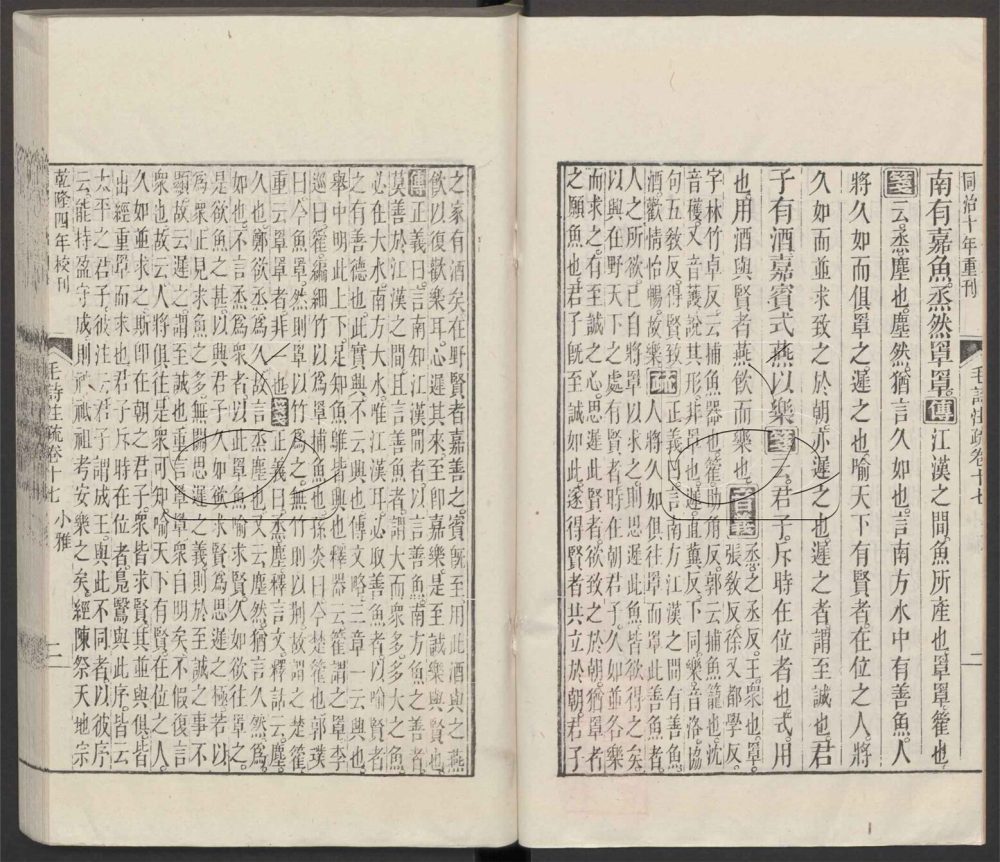 同治十年重刊 毛詩注疏卷十七 二
南有嘉魚烝然罩罩。傳江漢之閒魚所產也罩罩籗也
箋云烝塵也塵然猶言久如也言南方水中有善魚人
將久如而俱罩之遲之也喻天下有賢者在位之人將
久如而並求致之於朝亦遲之也遲之者謂至誠也君
子有酒嘉賓式燕以樂箋云君子斥時在位者也式用
也用酒與賢者燕飲而樂也音義烝之丞反王眾也罩
張敎反徐又都學反
字林竹卓反云捕魚器也籗助角反郭云捕魚籠也沈
音穫又音護說其形非罩也遲直冀反下同樂音洛協
句五敎反得賢致疏正義曰言南方江漢之間有善魚
酒歡情怡暢故樂人將久如俱往罩而罩此善魚者
人之所欲己自將罩以求之則思遲此魚皆欲得之矣
以興在野天下之處有賢者時在朝君子久如並各樂
而求之有至誠之心思遲此賢者欲致之於朝猶罩者
之願魚也君子旣至誠如此遂得賢者共立於朝君子
之家有酒矣在野賢者嘉善之賓旣至用此酒與之燕
飲以復歡樂耳心遲其來至卽嘉樂是至誠樂與賢也
傳正義曰言南知江漢閒者以言善魚南方魚之善者
莫善於江漢之間且言善魚者謂大而衆多多大之魚
必在大水南方大水唯江漢耳必取善魚者以喻賢者
之有善德也此實興也不云興者傳文略三章一云興也
舉中明此上下足知魚雖皆興也釋器云籗謂之罩李
巡曰籗編細竹以爲罩捕魚也孫炎曰今楚籗也郭璞
曰今魚罩然則罩以竹爲之無竹則以荆故謂之楚籗
重云罩罩者非一也箋正義曰烝塵釋言文釋詁云塵
久也鄭欲烝爲久故言烝塵也又云塵然猶言久然爲
如也不言烝爲衆者以此罩魚喻求賢久如欲往罩之
是欲魚之甚以興君子久如欲求賢爲思遲之極若以
爲衆正見求魚之多無關思遲之義則於至誠之事不
顯故云遲之謂至誠也重言罩罩衆自明矣不假復言
衆也故云人將俱往是衆可知喻天下有賢在位之人
久如並求之斯卽在朝之君子衆皆求賢其並與俱皆
出經重罩而來也君子斥時在位者鳧鷖與此序皆云
太平之君子彼注云君子謂成王與此不同者以彼序
云能持盈守成則神祇祖考安樂之矣經陳祭天地宗
乾隆四年校刊 毛詩注疏卷十七 小雅 三